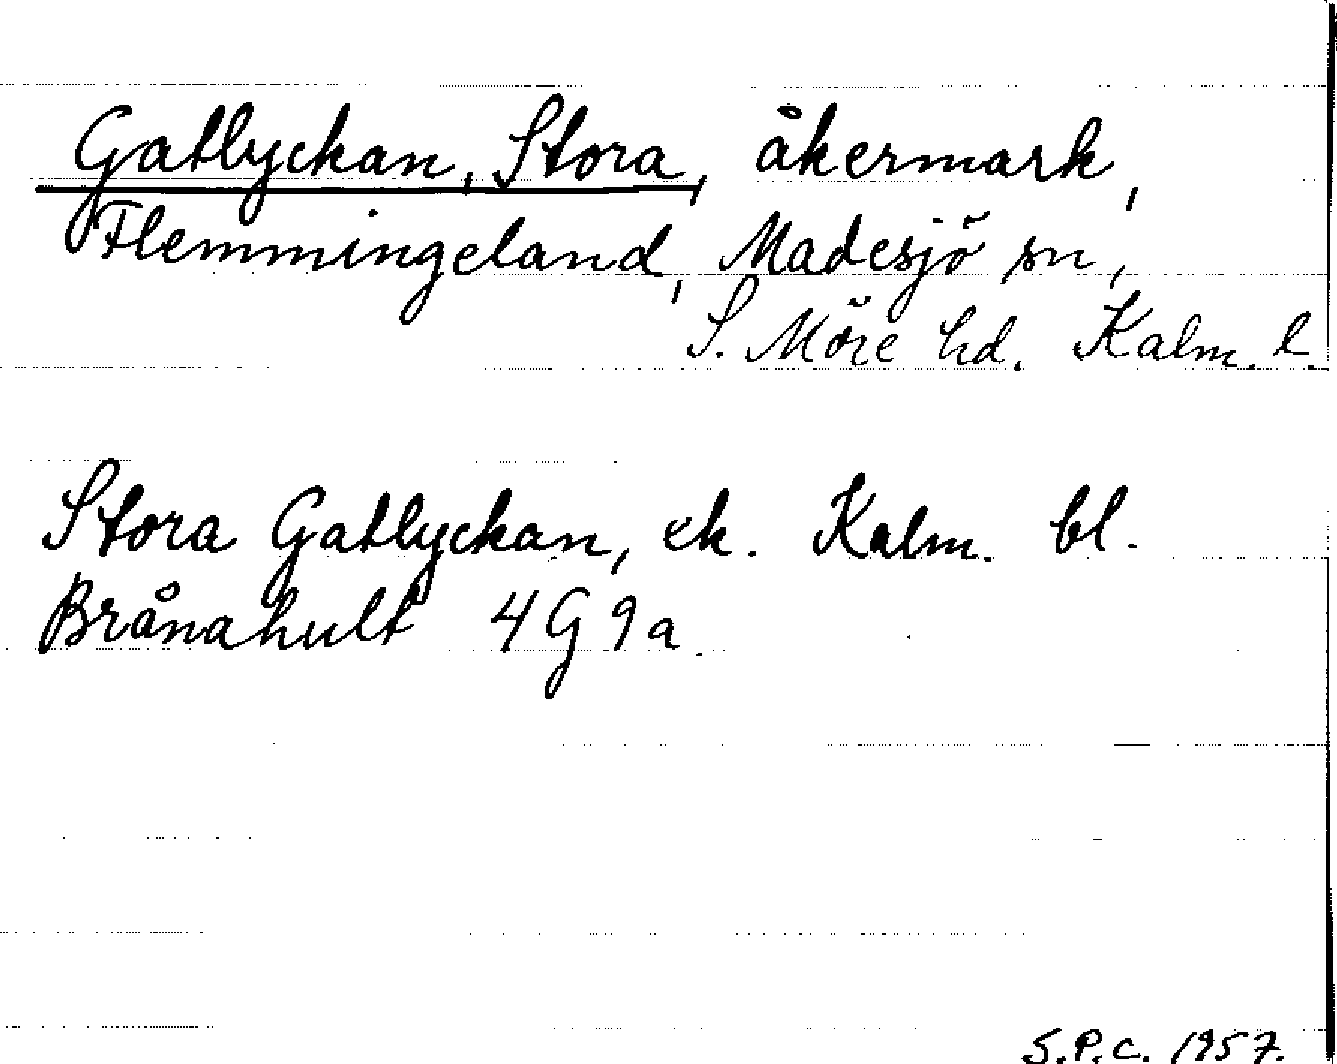 Gatlyckan, Stora, åkermark,
Flemmingeland, Madesjö sn,
S. Möre hd. Kalm. l.
Stora Gatlyckan, ek. Kalm. bl.
Brånahult 4G9a.
S.P.C. 1957.